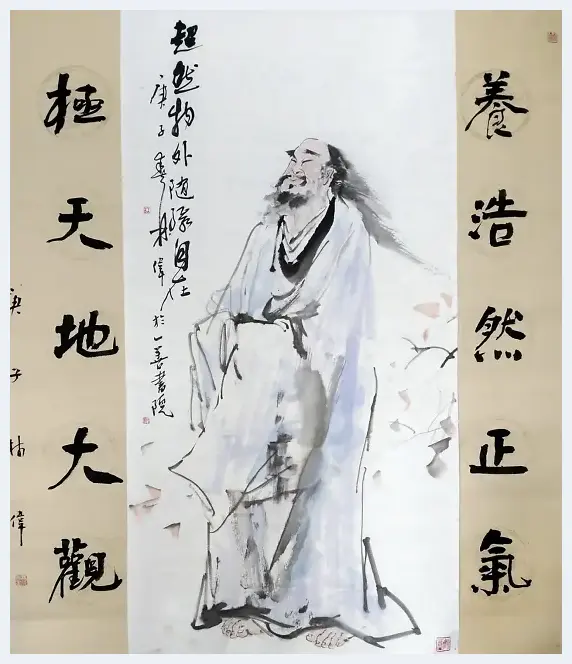 養浩然正氣
超然物外随緣自在
庚子春林偉於一善書院
極天地大觀
庚子林偉